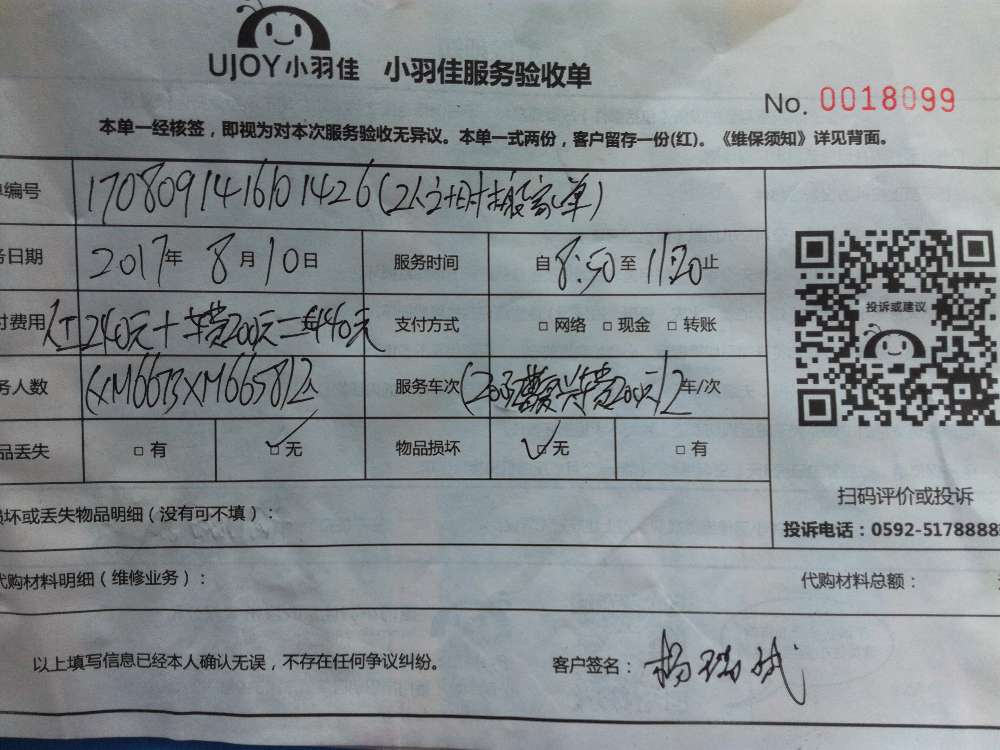 UJOY小羽佳 小羽佳服务验收单
No. 0018099
本单一经核签，即视为对本次服务验收无异议。本单一式两份，客户留存一份(红)。《维保须知》详见背面。
编号 1708091416101426(2人 搬家单)
务日期 2017年 8月10日 服务时间 自8:50至11:20止
付费用 人工240元+车费200元=440元 支付方式 □ 网络 □ 现金 □ 转账
务人数 (XM6673XM6658)2人 服务车次 车费200元)2车/次
品丢失 □ 有 □ 无 物品损坏 □ 无 □ 有
投诉或建议
损坏或丢失物品明细（没有可不填）：
扫码评价或投诉
投诉电话：0592-5178888
代购材料明细（维修业务）： 代购材料总额：
以上填写信息已经本人确认无误，不存在任何争议纠纷。 客户签名：杨瑞斌